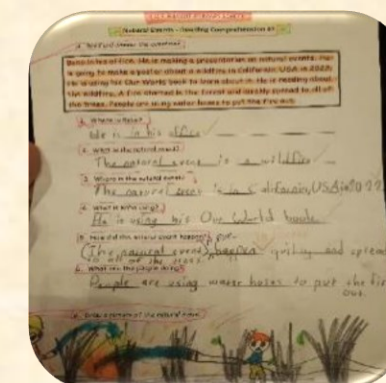 Natural Events - Reading Comprehension #1
A. Read and answer the questions
is in his office. He is making a presentation on natural events.
is going to make a poster about a wildfire in California, USA in 2022.
He is using his Our World book to learn about it. He is reading about
the wildfire. A fire started in the forest and quickly spread to all of
the trees. People are using water hoses to put the fire out.
1. Where is
He is in his office
2. What is the natural event?
The natural event is a wildfire
3. Where is the natural event?
The natural event is in California, USA in 2022
4. What is he using?
He is using his Our World book
5. How did this natural event happen?
(The natural event) happen quickly and spread
to all of the trees
6. What are the people doing?
People are using water hoses to put the fire
out.
Draw a picture of the natural event